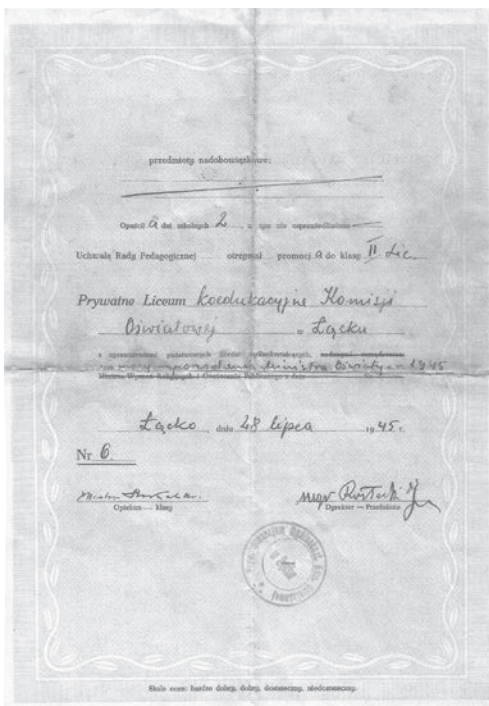 przedmioty nadobowiązkowe:
Opuścił a dni szkolnych 2, w tym nie usprawiedliwiono
Uchwałą Rady Pedagogicznej otrzymał promocj a do klasy II Lic.
Prywatne Liceum koedukacyjne Komisji
Oświatowej w Łącku
z uprawnieniami państwowych szkół
na mocy rozporządzenia Ministra Oświaty 1945
Łącko, dnia 28 lipca 1945 r.
Nr 6.
Opiekun — klasy
mgr
Dyrektor — Przełożona
Skala ocen: bardzo dobry, dobry, dostateczny, niedostateczny.